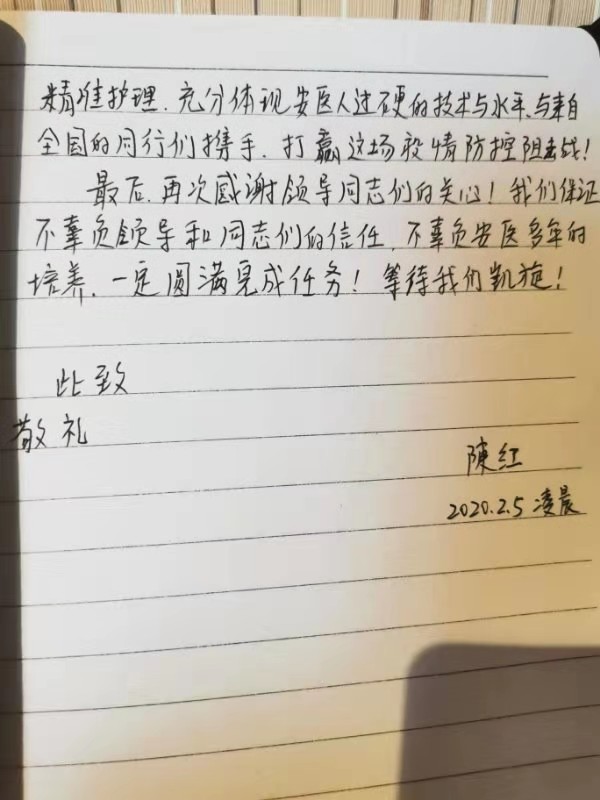 精准护理，充分体现安医人过硬的技术与水平，与来自
全国的同行们携手，打赢这场疫情防控阻击战！
最后，再次感谢领导同志们的关心！我们保证
不辜负领导和同志们的信任，不辜负安医多年的
培养，一定圆满完成任务！等待我们凯旋！
此致
敬礼
陳红
2020.2.5 凌晨